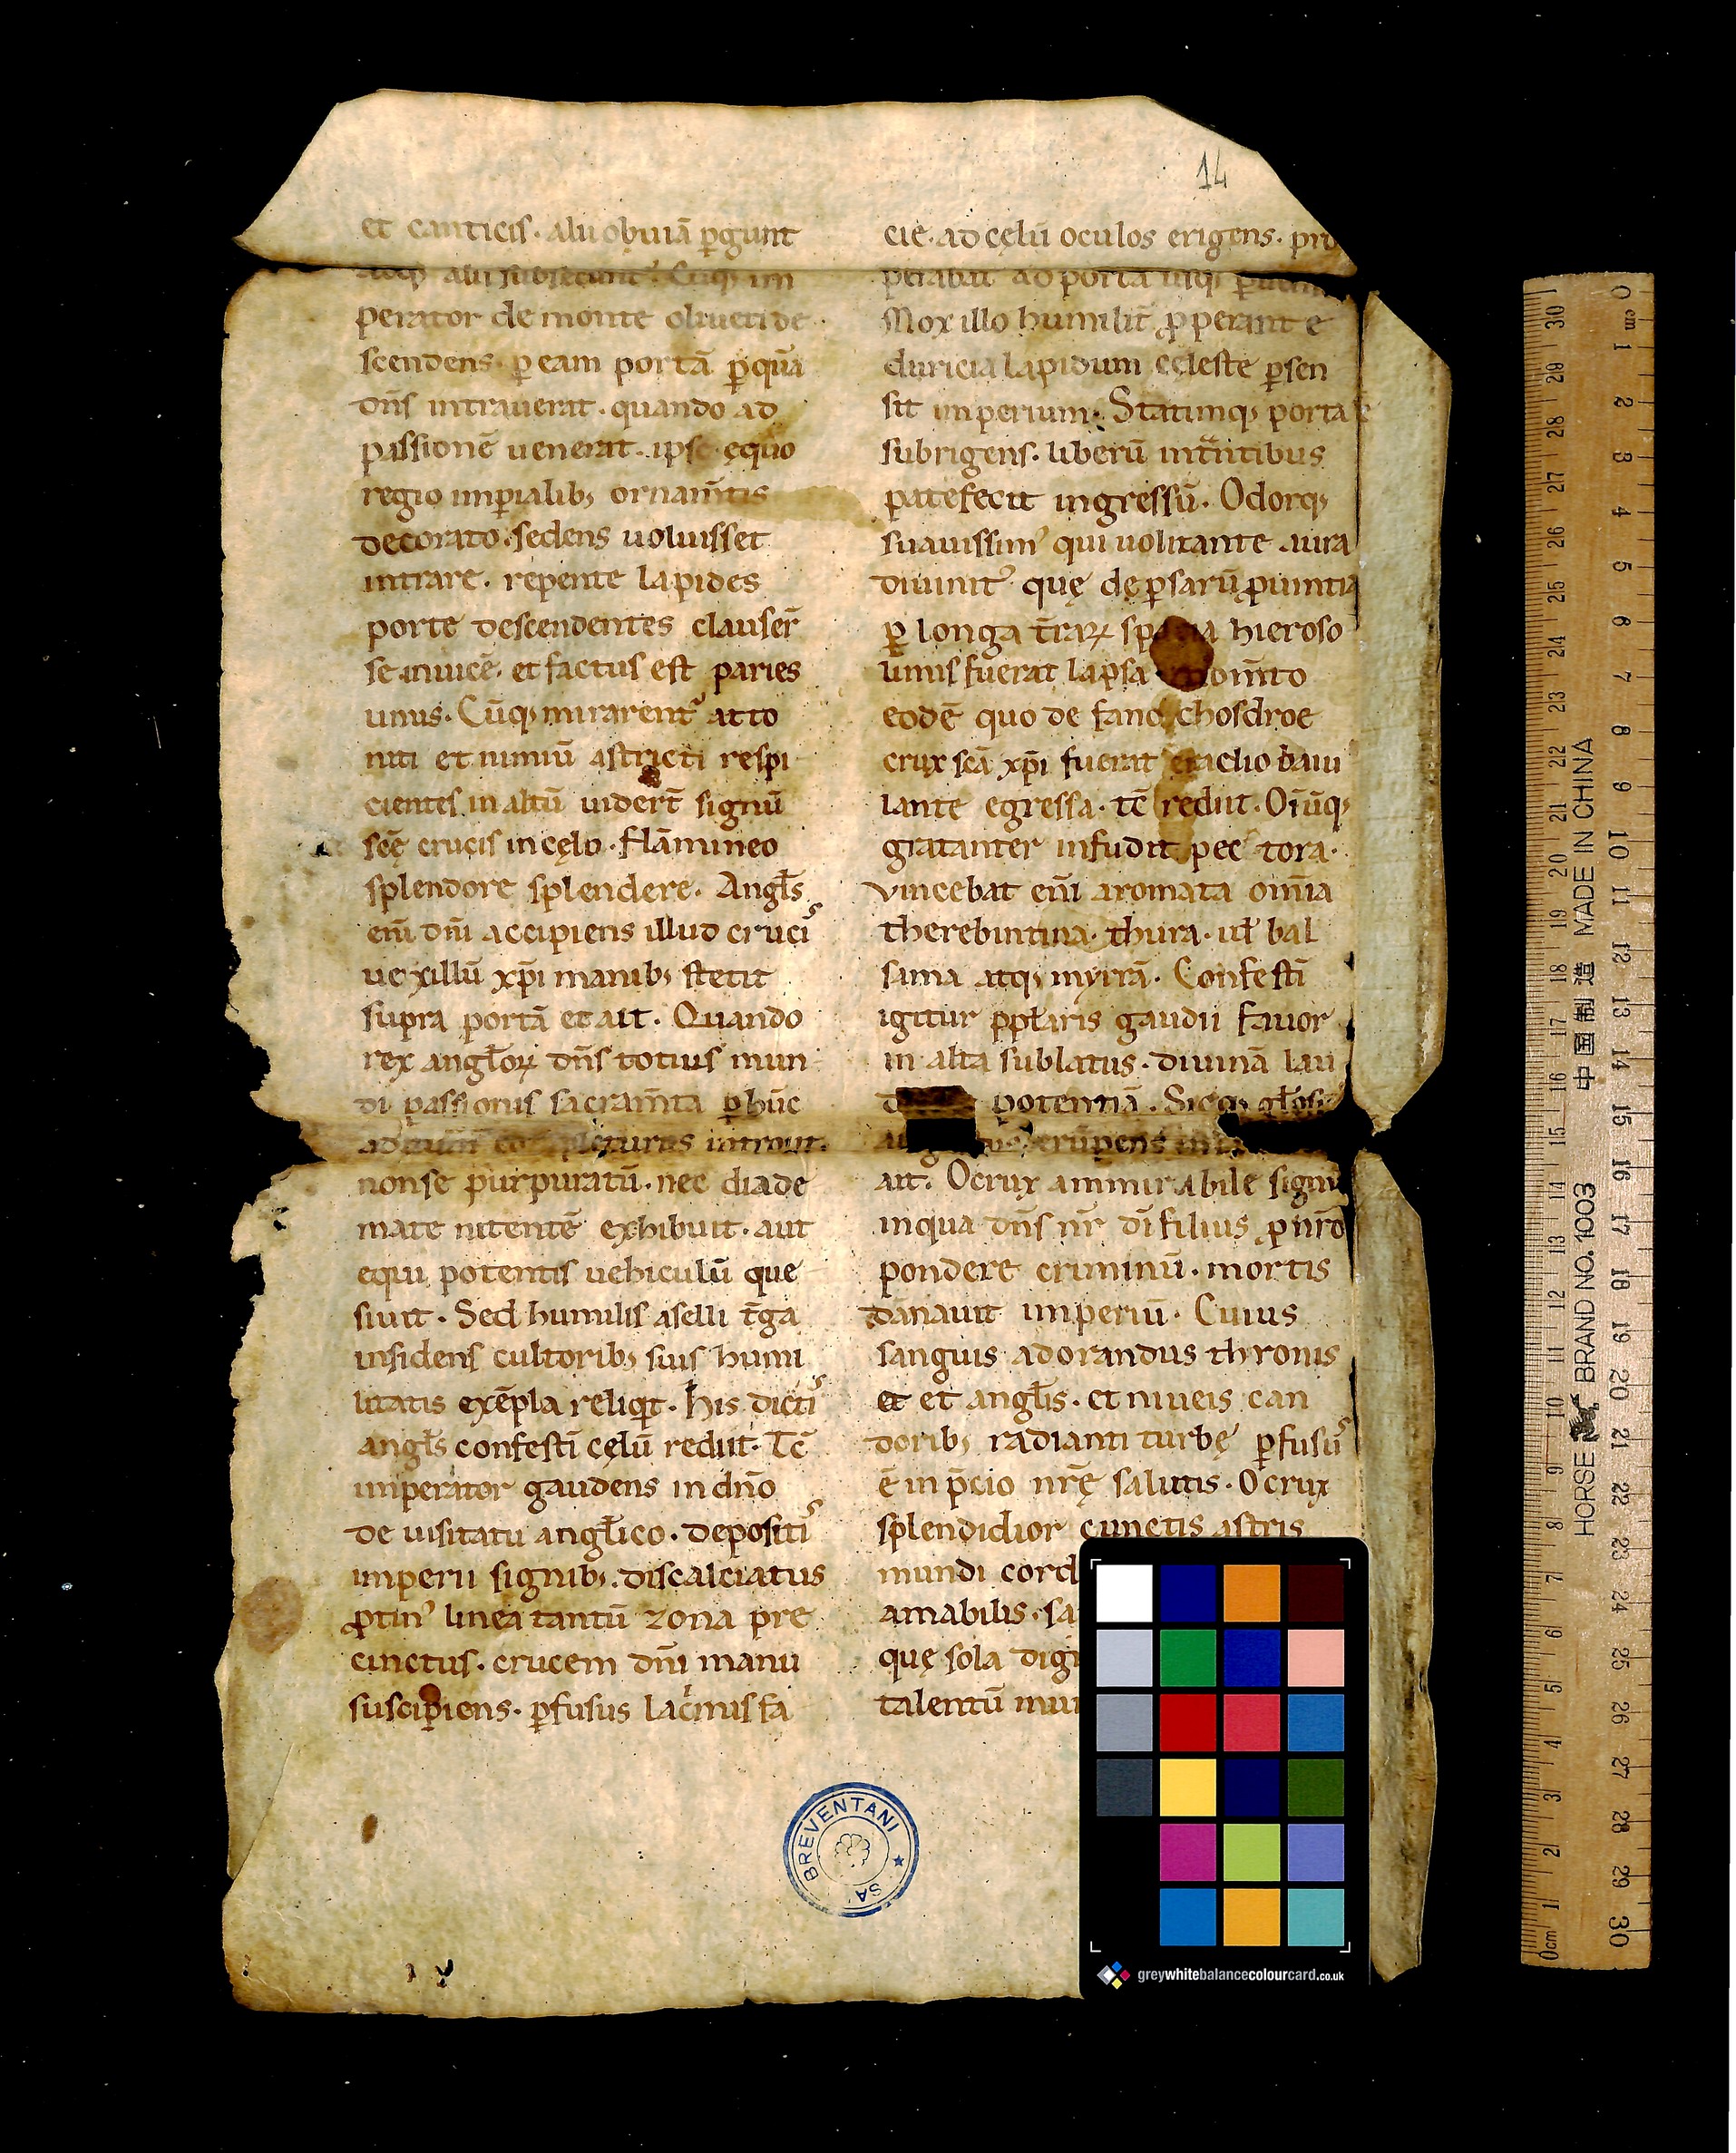 14
et canticis. alii obuiā ꝑgunt
perator de monte oliueti de
scendens. ꝑ eam portā ꝑ quā
dn̄s intrauerat. quando ad
passionē uenerat. ipse equo
regio imꝑialibꝫ ornam̄tis
decorato. sedens uoluisset
intrare. repente lapides
porte descendentes clauser̄
se inuicē. et factus est paries
unus. Cūqꝫ mirarent᷑ atto
niti et nimiū astricti respi
cientes in altū uidert̄ signū
scę̄ crucis in cęlo. flāmineo
splendore splendere. Angl̄s
em̄ dn̄i accipiens illud cruci᷒
uexillū xp̄i manibꝫ stetit
supra portā et ait. Quando
rex angl̄oꝝ dn̄s totius mun
di passionis sacram̄ta ꝑ hūc
introiit.
non se purpuratū. nec diade
mate nitentē exhibuit. aut
equi potentis uehiculū que
siuit. Sed humilis aselli t̄ga
insidens cultoribꝫ suis humi
litatis exēpla reliqt. his dicti᷒
angl̄s confestī cęlū rediit. Tc̄
imperator gaudens in dn̄o
de uisitatu angl̄ico. depositi᷒
imperii signibꝫ. discalciatus
ꝓtin᷒ linea tantū zona pre
cinctus. crucem dn̄i manu
suscipiens. ꝑfusus lac̍mis fa
cie. ad cęlū oculos erigens. pro
perabat ad portā usqꝫ
Mox illo humilit̄ ꝓperante
duricia lapidum cęleste ꝑsen
sit imperium. Statimqꝫ porta
subrigens. liberū intͣntibus
patefecit ingressū. Odorqꝫ
suauissim᷒ qui uolitante aura
diuinit᷒ quę de ꝑsarū ꝓuintia
ꝑ longa t̄raꝝ hieroso
limis fuerat lapsa
eodē quo de fano chosdroe
crux scā xp̄i fuerat eraclio baiu
lante egressa. tc̄ rediit. Oīūqꝫ
gratanter infudit pectora.
vincebat em̄i aromata om̄ia
therebintina. thura. ul̄ bal
sama atqꝫ myrrā. Confestī
igitur ppl̄aris gaudii fauor
in alta sublatus. diuinā lau
potentiā. Sicqꝫ
erūpens
ait. O crux ammirabile signū
in qua dn̄s nr̄ dī filius ꝓ nr̄o
pondere criminū. mortis
dānauit imperiū. Cuius
sanguis adorandus thronis
et et angl̄is. et niueis can
doribꝫ radianti turbę ꝑfusu᷒
ē in p̄cio nr̄ę salutis. O crux
splendidior cunctis astris
mundi cord
amabilis. sa
quę sola dig
talentū mun
BREVENTANI ★ SA
greywhitebalancecolourcard.co.uk
HORSE BRAND NO. 1003 中国制造 MADE IN CHINA